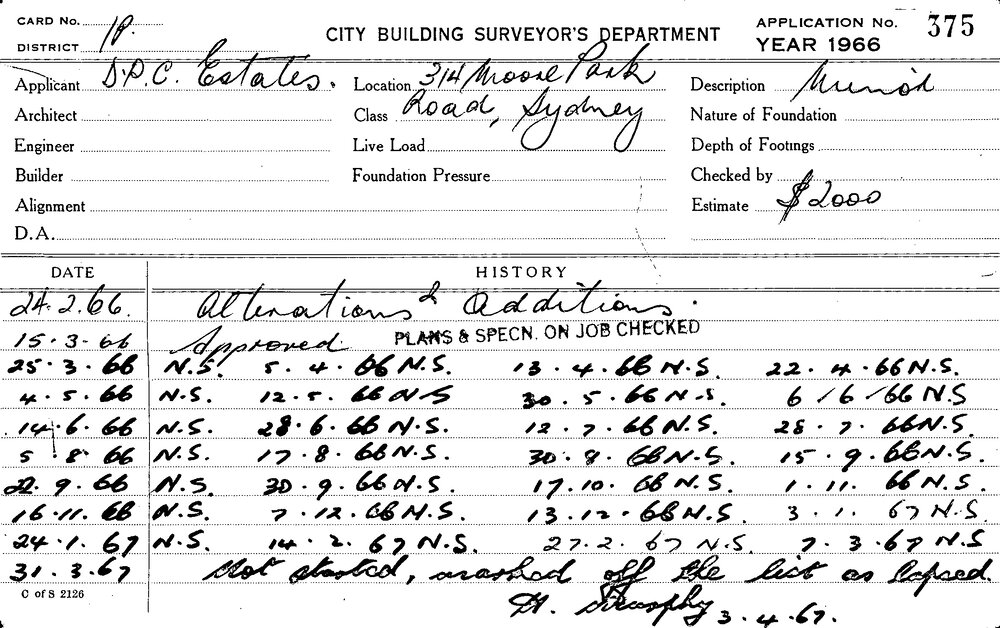 CARD No. 1P.
DISTRICT
CITY BUILDING SURVEYOR'S DEPARTMENT
APPLICATION No. 375
YEAR 1966
Applicant D.P.C. Estates. Location 314 Moore Park Description
Architect Class Road, Sydney Nature of Foundation
Engineer Live Load Depth of Footings
Builder Foundation Pressure Checked by
Alignment Estimate $2000
D.A.
DATE HISTORY
24.2.66. Alterations & additions.
15.3.66 Approved. PLANS & SPECN. ON JOB CHECKED
25.3.66 N.S. 5.4.66 N.S. 13.4.66 N.S. 22.4.66 N.S.
4.5.66 N.S. 12.5.66 N.S 30.5.66 N.S. 6/6/66 N.S
14.6.66 N.S. 28.6.66 N.S. 12.7.66 N.S. 28.7.66 N.S.
5.8.66 N.S. 17.8.66 N.S. 30.8.66 N.S. 15.9.66 N.S.
22.9.66 N.S. 30.9.66 N.S. 17.10.66 N.S. 1.11.66 N.S.
16.11.66 N.S. 7.12.66 N.S. 13.12.66 N.S. 3.1.67 N.S.
24.1.67 N.S. 14.2.67 N.S. 27.2.67 N.S. 7.3.67 N.S
31.3.67 Not started, marked off the list as lapsed.
C of S 2126
3.4.67.